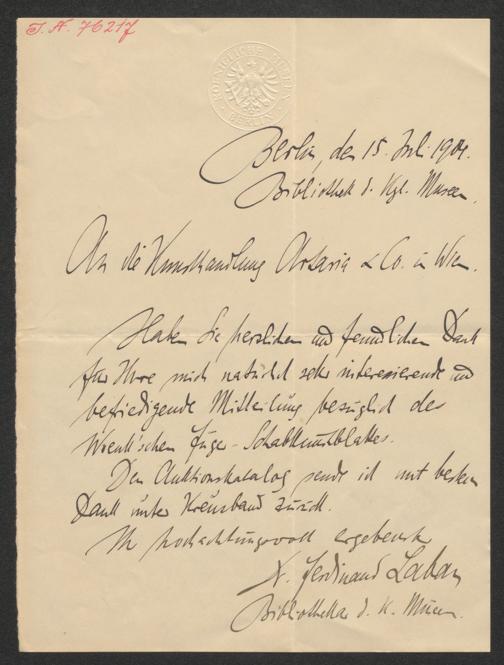 I.N. 76217
KOENIGLICHE MUSEEN
BERLIN
Berlin, den 15. Juli 1904.
Bibliothek d. Kgl. Museen.
An die Kunsthandlung Artaria & Co. in Wien.
Haben Sie herzlichen und freundlichen Dank
für Ihre mich natürlich sehr interessierende und
befriedigende Mitteilung bezüglich des
Wrenk'schen Füger-Schabkunstblattes.
Den Auktionskatalog sende ich mit bestem
Dank unter Kreuzband zurück.
Ihr hochachtungsvoll ergebenster
Ferdinand Laban
Bibliothekar d. K. Museen.